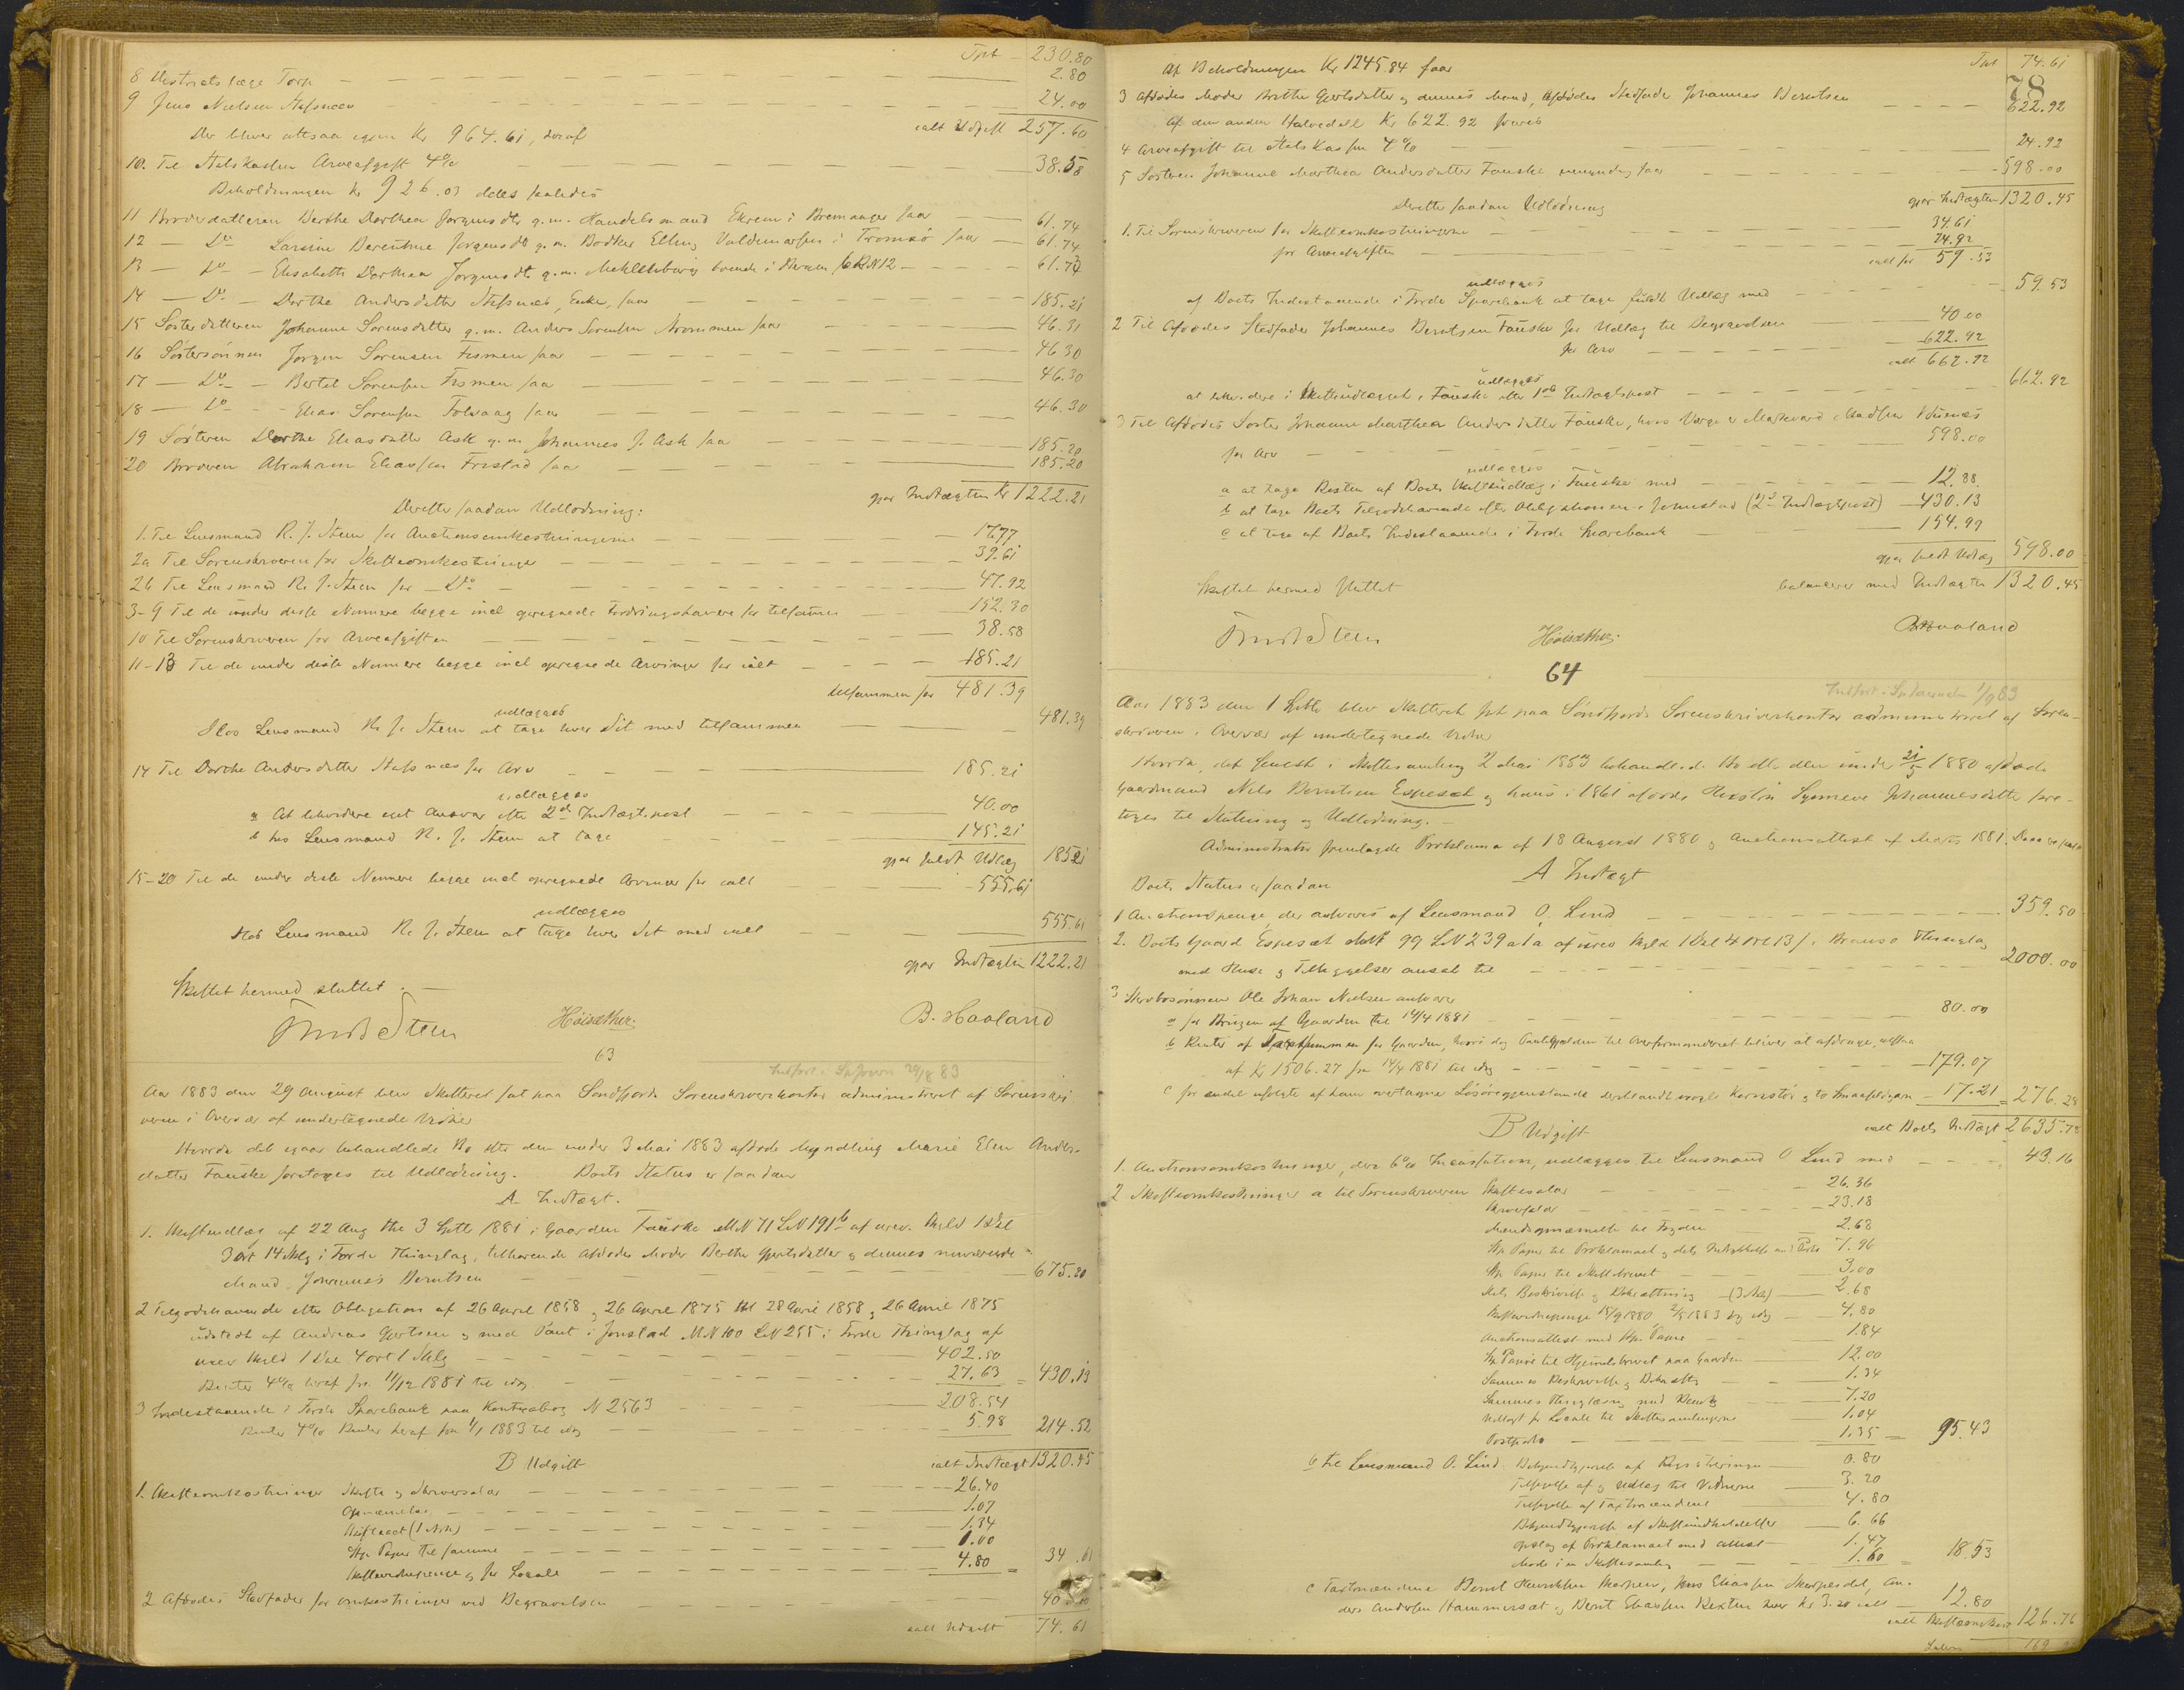 Tpt 230.80
8 Distriktslæge Torp 2.80
9 Jens Nielsen Stafsnæs 24.00
ialt Udgift 257.60
Der bliver altsaa igjen Kr 964.61, deraf
10. Til Statskassen Arveafgift 4% 38.58
Beholdningen Kr 926.03 deles saaledes
11 Broderdatteren Berthe Dorthea Jørgensdtr g.m. Handelsmand Ekrem i Bremanger faar 61.74
12 — Do Larsine Berentine Jørgensdtr g.m. Bødker Elling Valdemarsen i Tromsø faar 61.74
13 — Do — Elisabeth Dorthea Jørgensdtr g.m. boende i Bergen 61.73
14 — Do — Dorthe Andersdatter Stafsnæs, Enke, faar 185.21
15 Søsterdatteren Johanne Sørensdatter g.m. Anders Sørensen faar 46.31
16 Søstersønnen Jørgen Sørensen Fismen faar 46.30
17 — Do — Bertel Sørensen Fismen faar 46.30
18 — Do — Elias Sørensen Tolvaag faar 46.30
19 Søsteren Dorthe Eliasdatter Ask g.m. Johannes J. Ask faar 185.20
20 Broderen Abraham Eliassen Fristad faar 185.20
gjør Indtægten Kr 1222.21
Derefter saadan Udlodning:
1. Til Lensmand R. J. Steen for Auctionsomkostningerne 17.77
2a Til Sorenskriveren for Skifteomkostninger 39.61
2b Til Lensmand R. J. Steen for Do 47.92
3-9 Til de under disse Numere begge incl opregnede Fordringshavere for tilsammen 152.30
10 Til Sorenskriveren for Arveafgiften 38.58
11-13 Til de under disse Numere begge incl opregnede Arvinger for ialt 185.21
tilsammen for 481.39
udlægges
Hos Lensmand R. J. Steen at tage hver Sit med tilsammen 481.39
14 Til Dorthe Andersdatter Stafsnæs for Arv 185.21
udlægges
a At likvidere eget Ansvar efter 2den Indtægtspost 40.00
b hos Lensmand R. J. Steen at tage 145.21
gjør fuldt Udlæg 185.21
15-20 Til de under disse Numere begge incl opregnede Arvinger for ialt 555.61
udlægges
Hos Lensmand R. J. Steen at tage hver Sit med ialt 555.61
gjør Indtægten 1222.21
Skiftet hermed sluttet.
Steen Høisæther. B. Haaland
63
Aar 1883 den 29 August blev Skifteret sat paa Søndfjords Sorenskriverkontor administreret af Sorenskri
veren i Overvær af undertegnede Vidner
Hvorda det igaar behandlede Bo efter den under 3 Mai 1883 afdøde Myndling Marie Elen Anders-
datter Fauske foretages til Udlodning. Boets Status er saadan
A Indtægt.
1. Skifteudlæg af 22 Aug thl 3 Septb 1881 i Gaarden Fauske MN 71 LN 191b af urev. Skyld 1 Dal
3 ort 14 Sklg i Førde Thinglag, tilhørende Afdødes Moder Berthe Gjertsdatter og dennes nuværende
Mand Johannes Berntsen 675.80
2 Tilgodehavende efter Obligation af 26 April 1858 og 26 April 1875 thl 28 April 1858 og 26 April 1875
udstedt af Andreas Gjertsen og med Pant i Jonstad MN 100 LN 255 i Førde Thinglag af
urev Skyld 1 Dal 4 ort 1 Sklg 402.50
Renter 4% heraf fra 11/12 1881 til idag 27.63 = 430.13
3 Indestaaende i Førde Sparebank paa Kontrabog N 2563 208.54
Renter 4% Renter heraf fra 1/1 1883 til idag 5.98 214.52
B Udgift ialt Indtægt 1320.45
1. Skifteomkostninger Skifte og Skriversalær 26.40
Opnævnelse 1.07
Skifteact (1 Ark) 1.34
Stp. Papir til samme 1.00
Skiftevidnepenge og for Locale 4.80 = 34.61
2 Afdødes Stedfader for omkostninger ved Begravelsen 40.00
ialt Udgift 74.61
Tpt 74.61
78
Af Beholdningen Kr 1245.84 faar
3 Afdødes Moder Berthe Gjertsdatter og dennes Mand, Afdødes Stedfader Johannes Berntsen 622.92
Af den anden Halvedeel Kr 622.92 svares
4 Arveafgift til Statskassen 4% 24.92
5 Søsteren Johanne Marthea Andersdatter Fauske umyndig faar 598.00
gjør Indtægten 1320.45
Derefter saadan Udlodning
1. Til Sorenskriveren for Skifteomkostningerne 34.61
for Arveafgiften 24.92
ialt for 59.53
udlægges
af Boets Indestaaende i Førde Sparebank at tage fuldt Udlæg med 59.53
2 Til Afdødes Stedfader Johannes Berntsen Fauske for Udlæg til Begravelsen 40.00
for Arv 622.92
ialt 662.92
udlægges
at likvidere i Skifteudlægget i Fauske efter 1ste Indtægtspost 662.92
3 Til Afdødes Søster Johanne Marthea Andersdatter Fauske, hvis Værge er Markvard Madsen
for Arv 598.00
udlægges
a at tage Resten af Boets Skifteudlæg i Fauske med 12.88
b at tage Boets Tilgodehavende efter Obligationen i Jonestad (2den Indtægtspost) 430.13
c at tage af Boets Indestaaende i Førde Sparebank 154.99
gjør fuldt Udlæg 598.00
Skiftet hermed sluttet balancerer med Indtægten 1320.45
Steen Høisæther. B Haaland
64
Aar 1883 den 1 Septb blev Skifteret sat paa Søndfjords Sorenskriverkontor administreret af Soren-
skriveren i Overvær af undertegnede Vidner
Hvorda, det senest i Skiftesamling 2 Mai 1883 behandlede Bo efter den under 21/5 1880 afdøde
Gaardmand Nils Berntsen Espeset og hans i 1861 afdøde Hustru Synneve Johannesdatter fore-
toges til Slutning og Udlodning.
Administrator fremlagde Proklama af 18 August 1880 og Auctionsattest af Marts 1881.
A Indtægt
Boets Status er saadan
1 Auctionspenge der ansvares af Lensmand O. Lind 359.50
2. Boets Gaard Espeset MN 99 LN 239 a/a af urev Skyld 1 Dal 4 ort 13 s i Thinglag
med Huse og Tilliggelser ansat til 2000.00
3 Stervbosønnen Ole Johan Nielsen ansvarer
a for Brugen af Gaarden til 14/4 1881 80.00
b Renter af Taxtsummen for Gaarden, hvori dog Pantegjelden til Overformynderiet bliver at afdrage, altsaa
af Kr 1506.27 fra 14/4 1881 til idag 179.07
c for endel usolgte af ham overtagne Løsøregjenstande deriblandt noget Kornstør og to 17.21 = 276.28
B Udgift ialt Boets Indtægt 2635.78
1. Auctionsomkostninger, der 6% Incassation, udlægges til Lensmand O Lind med 43.16
2 Skifteomkostninger a til Sorenskriveren Skiftesalær 26.36
Skriversalær 23.18
Mændsopnævnelse til Taxten 2.68
Stp. Papir til Proklamaet og dets Indrykkelse med Porto 7.96
Stp. Papir til Skiftebrevet 3.00
dets Beskrivelse og Bekræftning (3 Ark) 2.68
Skiftevidnepenge 15/9 1880 2/5 1883 og idag 4.80
Auctionsattest med Stp. Papir 1.84
Stp Papir til Hjemmelsbrevet paa Gaarden 12.00
Sammes Beskrivelse og Bekræftg 1.34
Sammes Thinglæsning med 7.20
Udlagt for Locale til Skiftesamlingerne 1.04
Postporto 1.35 = 95.43
b til Lensmand O. Lind. Bekjendtgjørelse af Registreringen 0.80
Tilsigelse af og Udlæg til Vidnerne 3.20
Tilsigelse af Taxtmændene 4.80
Bekjendtgjørelse af Skifteindkaldelser 6.66
Opslag af Proklamaet med Attest 1.47
Møde i en Skiftesamling 1.60 = 18.53
c Taxtmændene Bernt Henriksen, Jens Eliassen, An-
ders Andersen Hammersæt og Bernt Eliassen hver Kr 3.20 ialt 12.80
ialt Skifteomkost 126.76
Lateris